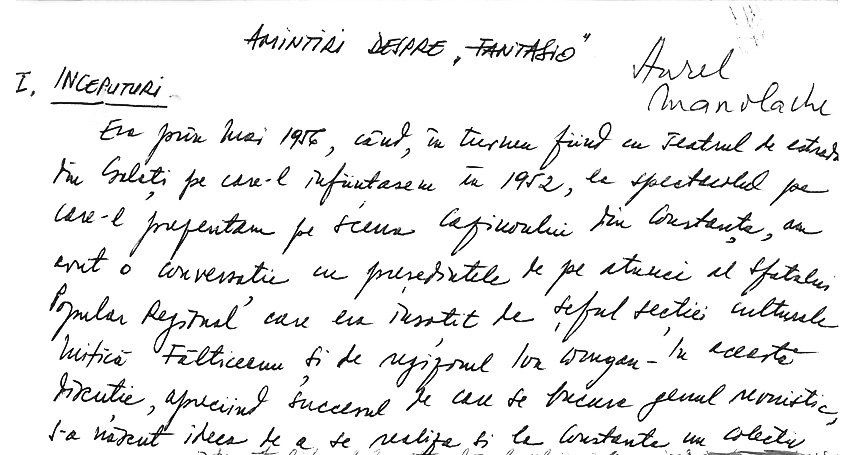 AMINTIRI DESPRE „FANTASIO"
Aurel
Manolache
I. INCEPUTURI
Era prin Mai 1956, când, în turneu fiind cu Teatrul de estradă
din Galați pe care-l înființasem în 1952, la spectacolul pe
care-l prezentam pe scena Cazinoului din Constanța, am
avut o conversație cu președintele de pe atunci al Sfatului
Popular Regional care era însoțit de șeful secției culturale
Mitică Fălticeanu și de regizorul Ion Drugan - In această
discuție, apreciind succesul de care se bucura genul revuistic,
s-a născut ideea de a se realiza și la Constanța un colectiv